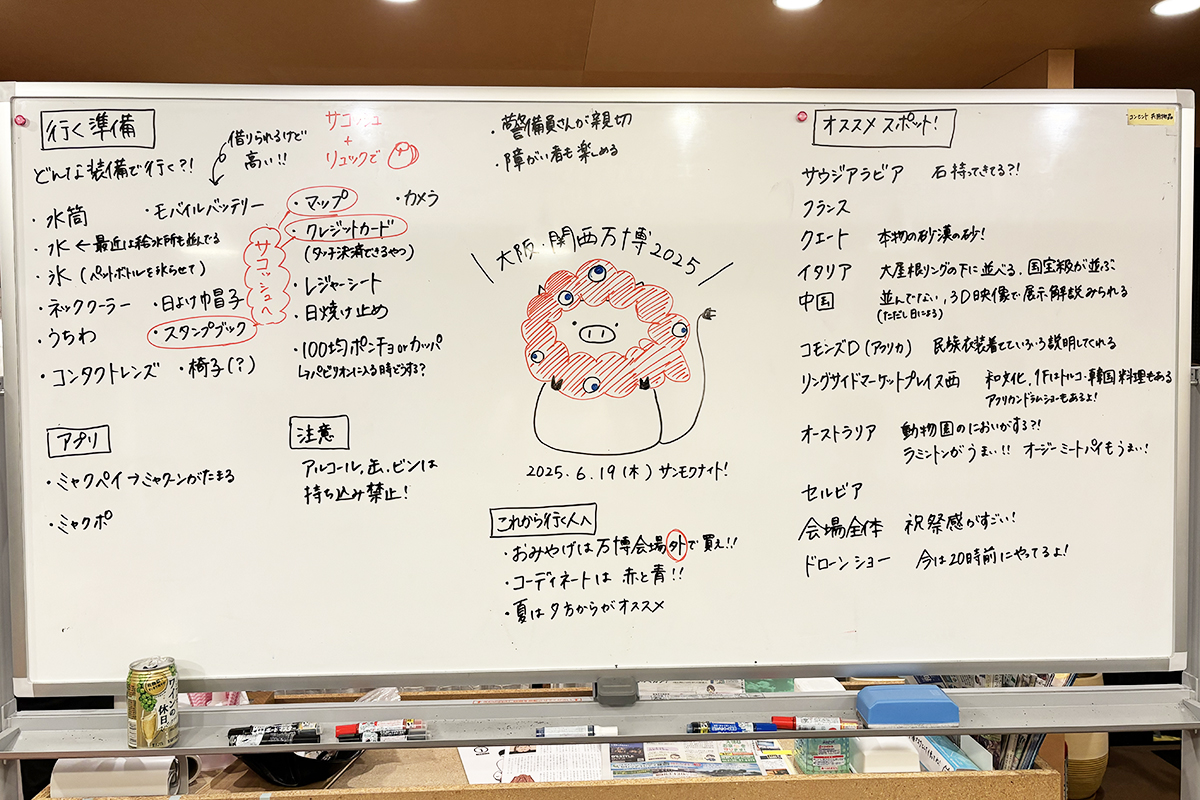 行く準備
どんな装備で行く?!
借りられるけど
高い!!
サコッシュ
+
リュックで
・水筒
・モバイルバッテリー
・マップ
・カメラ
・水 ← 最近は給水所も並んでる
・クレジットカード
(タッチ決済できるやつ)
・氷(ペットボトルを氷らせて)
サコッシュへ
・レジャーシート
・ネッククーラー
・日よけ巾冒子
・日焼け止め
・うちわ
・スタンプブック
・100均ポンチョorカッパ
↳パビリオンに入る時どうする?
・コンタクトレンズ
・椅子(?)
アプリ
・ミャクペイ→ミャクーンがたまる
・ミャクポ
注意
アルコール、缶、ビンは
持ち込み禁止!
・警備員さんが親切
・障がい者も楽しめる
\大阪・関西万博2025/
2025.6.19(木) サンモクナイト!
これから行く人へ
・おみやげは万博会場外で買え!!
・コーディネートは 赤と青!!
・夏は夕方からがオススメ
オススメスポット!
サウジアラビア 石持ってきてる?!
フランス
クエート 本物の砂漠の砂!
イタリア 大屋根リングの下に並べる、国宝級が並ぶ
中国 並んでない、3D映像で展示解説みられる
(ただし日による)
コモンズD(アフリカ) 民族衣装着てていろいろ説明してくれる
リングサイドマーケットプレイス西 和文化、1Fはトルコ・韓国料理もある
アフリカンドラムショーもあるよ!
オーストラリア 動物園のにおいがする?!
ラミントンがうまい!! オージーミートパイもうまい!
セルビア
会場全体 祝祭感がすごい!
ドローンショー 今は20時前にやってるよ!
ワインの
休日